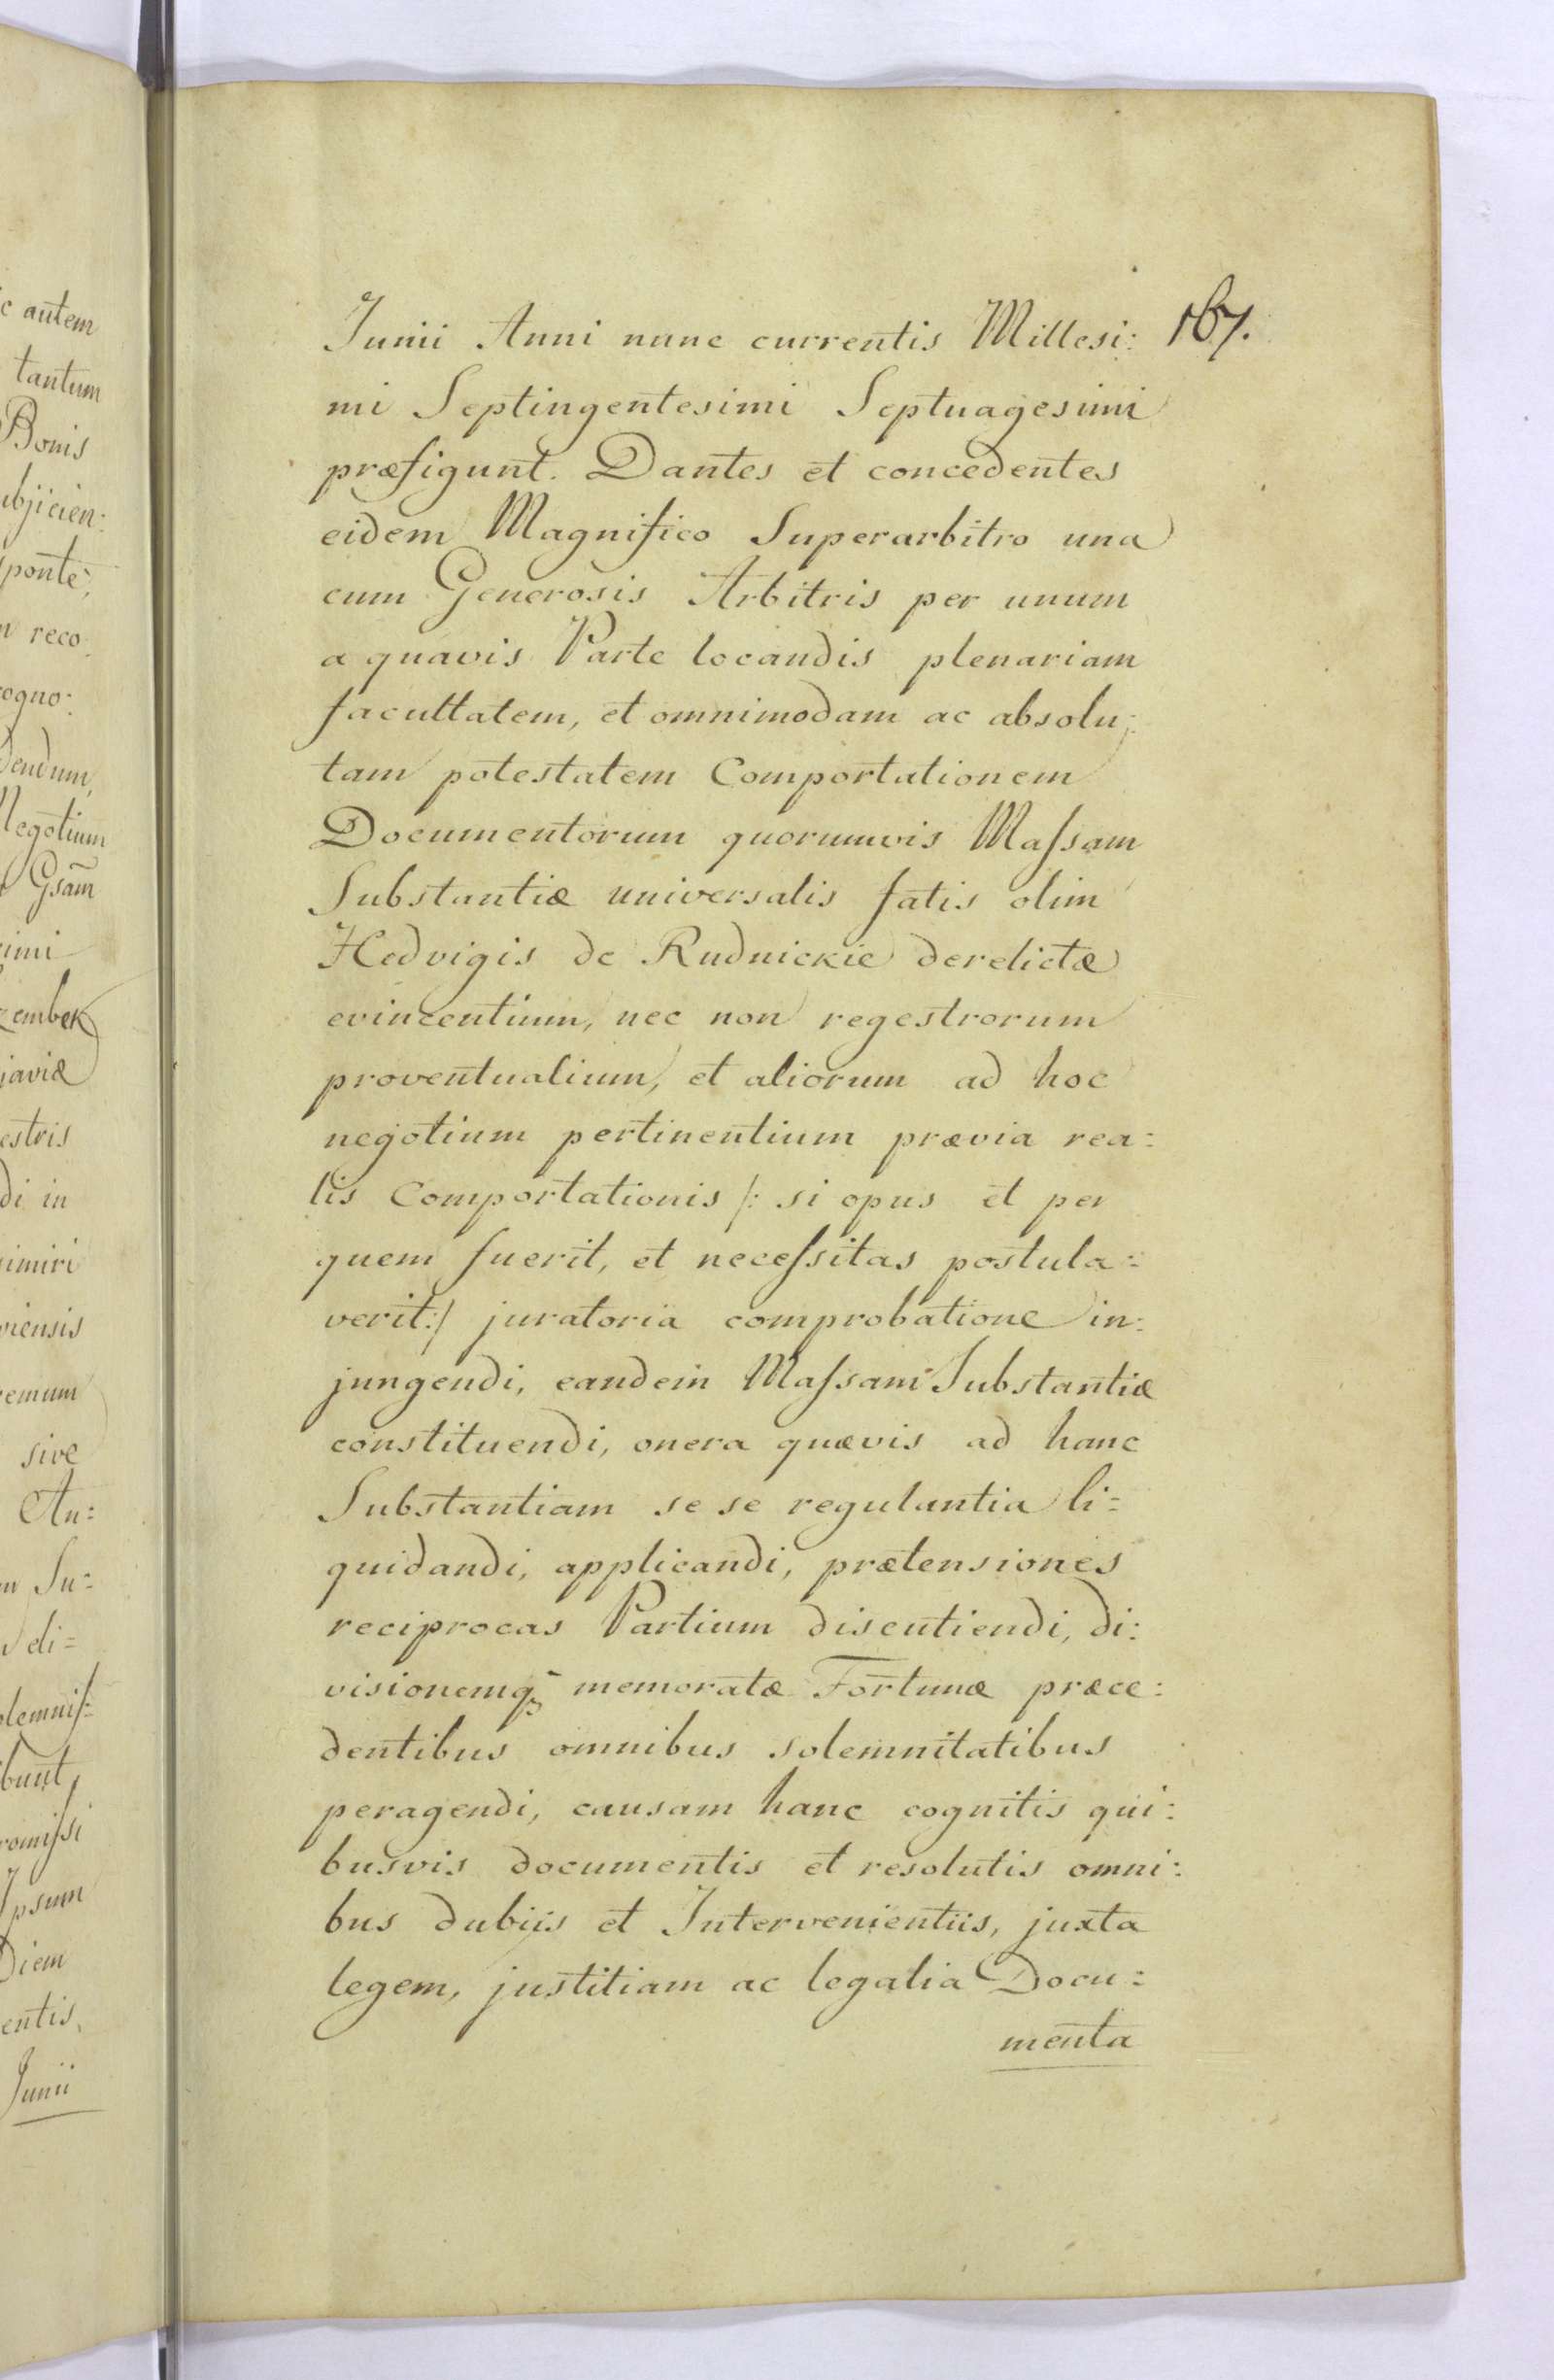 c autem
tantum
Bonis
ubjicien:
sponte,
n reco:
cogno:
dendum,
Negotium
Gsam̃
zimi
zembek
javiæ
estris
di in
zimiri
viensis
emum
sive
An:
m Su:
di=
olemniſ:
bunt,
romiſsi
Ipsum
Diem
entis,
Junii
Junii Anni nunc currentis Millesi: 167.
mi Septingentesimi Septuagesimi
præfigunt. Dantes et concedentes
eidem Magnifico Superarbitro una
cum Generosis Arbitris per unum
a quavis Parte locandis plenariam
facultatem, et omnimodam ac absolu:
tam potestatem Comportationem
Documentorum quorumvis Maſsam
Substantiæ universalis fatis olim
Hedvigis de Rudnickie derelictæ
evincentium, nec non regestrorum
proventualium, et aliorum ad hoc
negotium pertinentium prævia rea:
lis Comportationis /: si opus et per
quem fuerit, et neceſsitas postula:
verit:/ juratoria comprobatione in:
jungendi, eandem Maſsam Substantiæ
constituendi, onera quævis ad hanc
Substantiam se se regulantia li=
quidandi, applicandi, prætensiones
reciprocas Partium discutiendi, di:
visionemq̃ memoratæ Fortunæ præce:
dentibus omnibus solemnitatibus
peragendi, causam hanc cognitis qui:
busvis documentis et resolutis omni:
bus dubiis et Intervenientiis, juxta
legem, justitiam ac legalia Docu:
menta